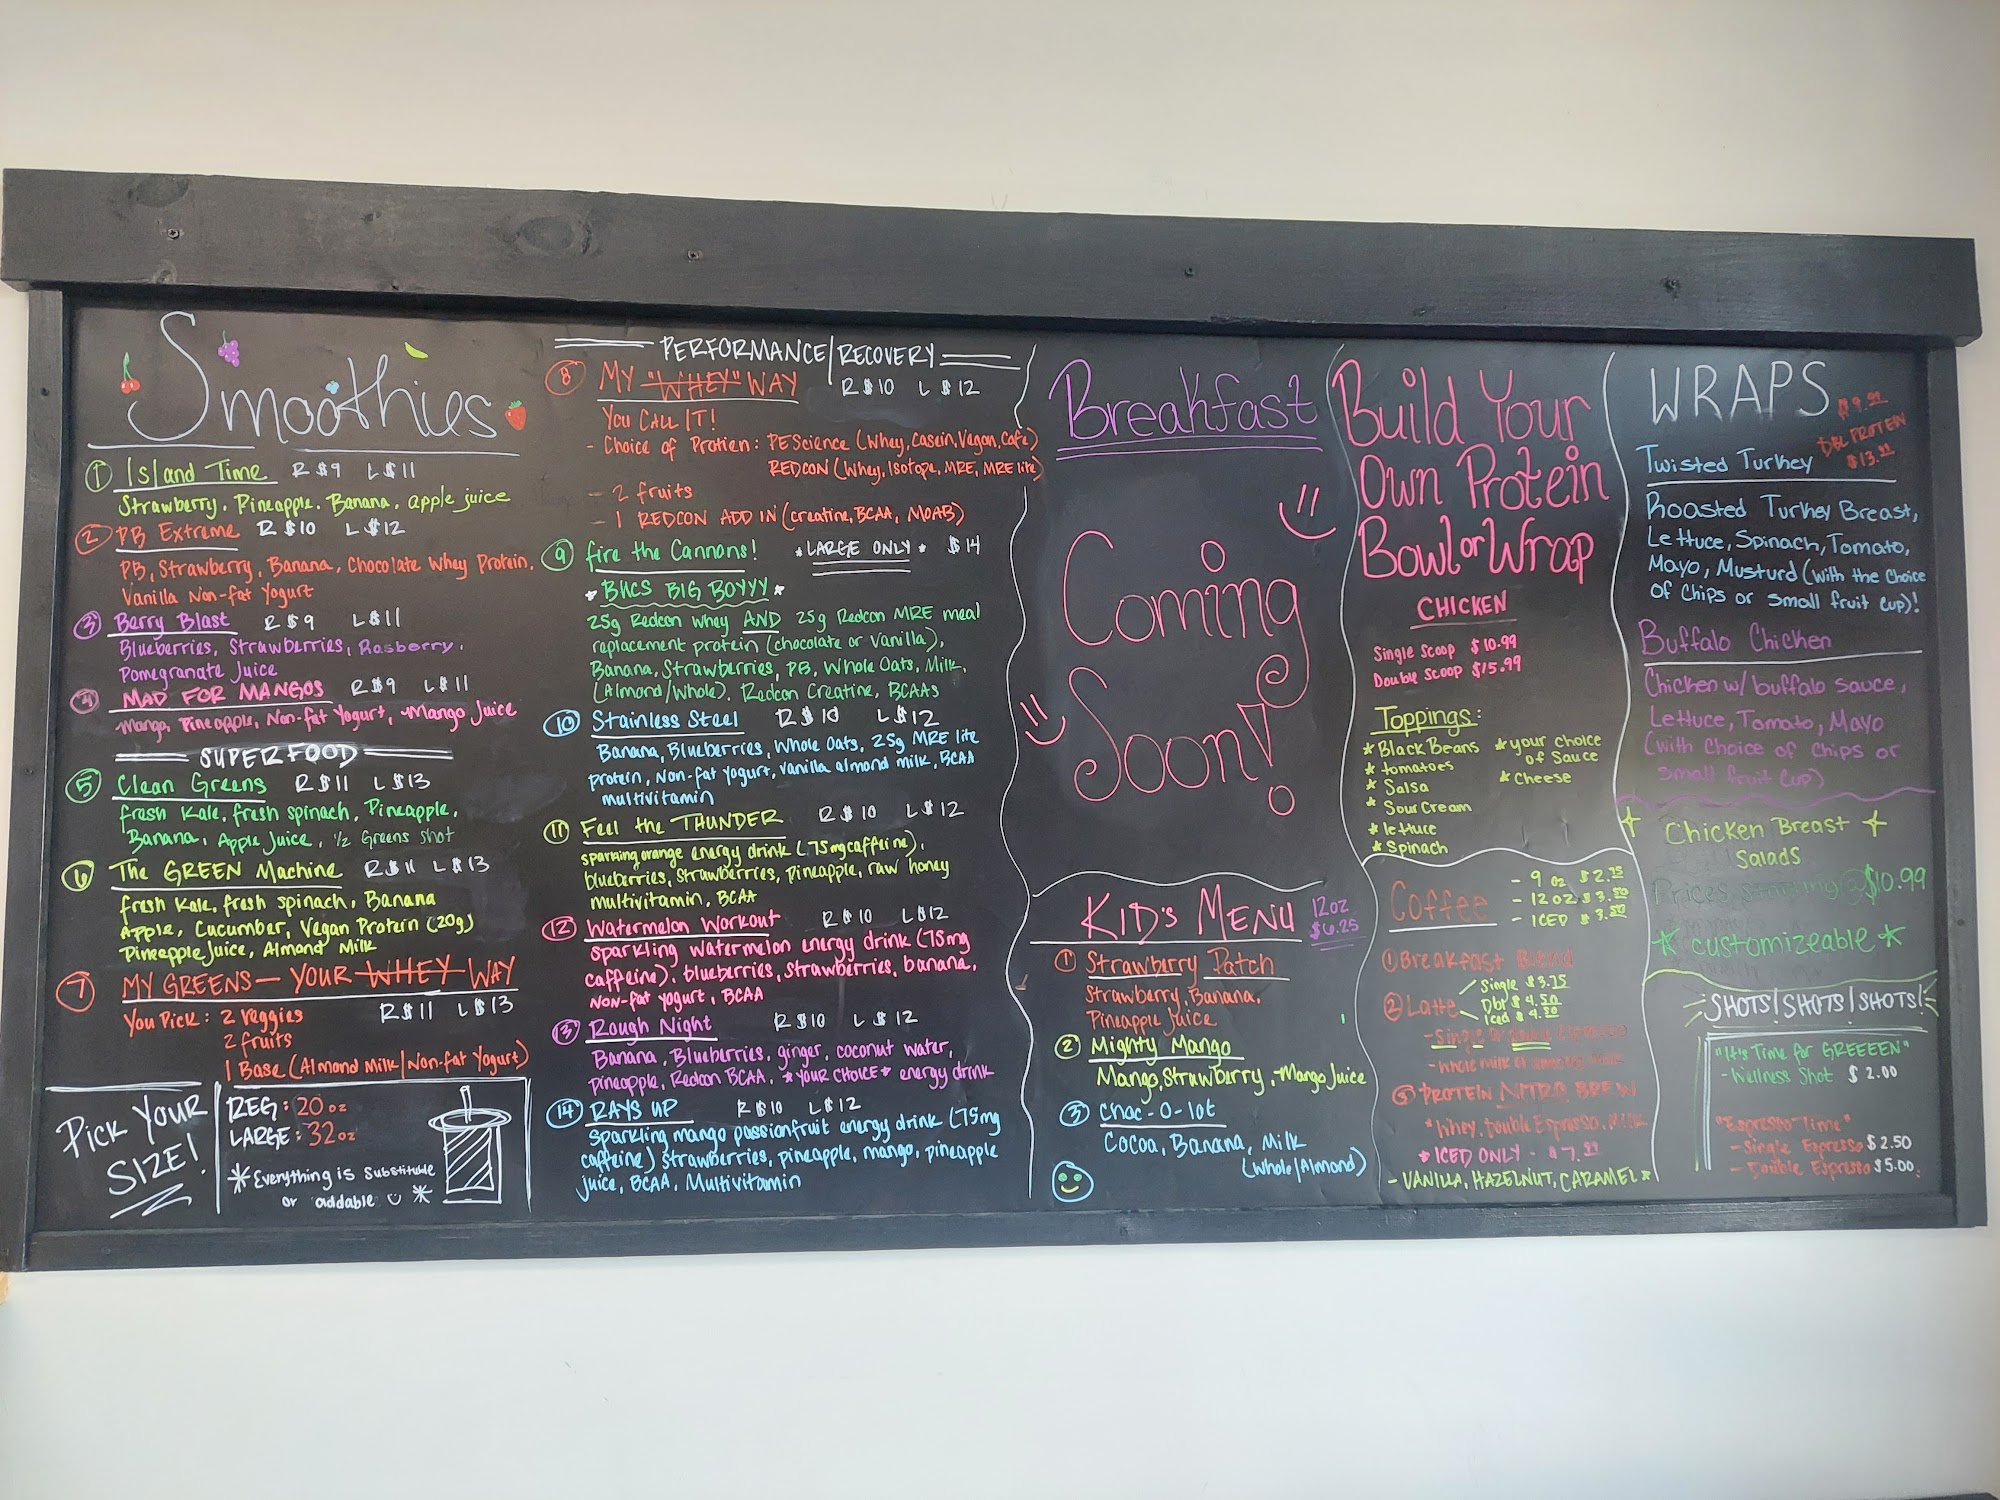 Smoothies
① Island Time R $9 L $11
Strawberry, Pineapple, Banana, apple juice
② PB Extreme R $10 L $12
PB, Strawberry, Banana, Chocolate Whey Protein,
Vanilla Non-fat Yogurt
③ Berry Blast R $9 L $11
Blueberries, Strawberries, Rasberry,
Pomegranate Juice
④ MAD FOR MANGOS R $9 L $11
Mango, Pineapple, Non-fat Yogurt, Mango Juice
SUPERFOOD
⑤ Clean Greens R $11 L $13
fresh Kale, fresh spinach, Pineapple,
Banana, Apple Juice, 1/2 Greens shot
⑥ The GREEN Machine R $11 L $13
fresh Kale, fresh spinach, Banana
Apple, Cucumber, Vegan Protein (20g)
Pineapple Juice, Almond Milk
⑦ MY GREENS — YOUR WHEY WAY
You Pick: 2 veggies R $11 L $13
2 fruits
1 Base (Almond Milk/Non-fat Yogurt)
PICK YOUR SIZE!
REG: 20 oz
LARGE: 32 oz
* Everything is substitutable
or addable *
PERFORMANCE/RECOVERY
⑧ MY "WHEY" WAY R $10 L $12
YOU CALL IT!
- Choice of Protien: PEScience (Whey, Casein, Vegan, Cafe)
REDCON (Whey, Isotope, MRE, MRE lite)
- 2 fruits
- 1 REDCON ADD IN (creatine, BCAA, MOAB)
⑨ fire the Cannons! *LARGE ONLY* $14
* BUCS BIG BOYYY *
25g Redcon Whey AND 25g Redcon MRE meal
replacement protein (chocolate or vanilla),
Banana, Strawberries, PB, Whole Oats, Milk,
(Almond/Whole). Redcon Creatine, BCAAs
⑩ Stainless Steel R $10 L $12
Banana, Blueberries, Whole Oats, 25g MRE lite
protein, Non-fat yogurt, vanilla almond milk, BCAA
multivitamin
⑪ Feel the THUNDER R $10 L $12
sparkling orange energy drink (75mg caffeine),
blueberries, strawberries, pineapple, raw honey
multivitamin, BCAA
⑫ Watermelon Workout R $10 L $12
sparkling watermelon energy drink (75mg
caffeine), blueberries, strawberries, banana,
Non-fat yogurt, BCAA
⑬ Rough Night R $10 L $12
Banana, Blueberries, ginger, coconut water,
pineapple, Redcon BCAA, *YOUR CHOICE* energy drink
⑭ RAYS UP R $10 L $12
sparkling mango passionfruit energy drink (75mg
caffeine) strawberries, pineapple, mango, pineapple
juice, BCAA, Multivitamin
Breakfast
Coming
Soon!
KID'S MENU 12oz
$6.25
① Strawberry Patch
Strawberry, Banana,
Pineapple Juice
② Mighty Mango
Mango, Strawberry, Mango Juice
③ Choc-o-lot
Cocoa, Banana, Milk
(Whole/Almond)
Build Your
Own Protein
Bowl or Wrap
CHICKEN
Single Scoop $10.99
Double Scoop $15.99
Toppings:
* Black Beans
* tomatoes
* Salsa
* Sour Cream
* lettuce
* Spinach
* your choice
of Sauce
* Cheese
Coffee
- 9 oz $2.75
- 12 oz $3.50
- ICED $3.50
① Breakfast Blend
② Latte
Single $3.75
Dbl $4.50
Iced $4.50
- Single or double Espresso
- whole milk or almond milk
③ PROTEIN NITRO BREW
* Whey, Double Espresso, Milk
* ICED ONLY - $7.99
- VANILLA, HAZELNUT, CARAMEL *
WRAPS
$9.99
DBL PROTEIN
$13.99
Twisted Turkey
Roasted Turkey Breast,
Lettuce, Spinach, Tomato,
Mayo, Musturd (with the choice
of Chips or small fruit cup)!
Buffalo Chicken
Chicken w/ buffalo sauce,
Lettuce, Tomato, Mayo
(with choice of chips or
small fruit cup)
Chicken Breast
Salads
Prices starting @ $10.99
* customizeable *
SHOTS! SHOTS! SHOTS!
"It's Time for GREEEEN"
- Wellness Shot $2.00
"Espresso Time"
- Single Espresso $2.50
- Double Espresso $5.00